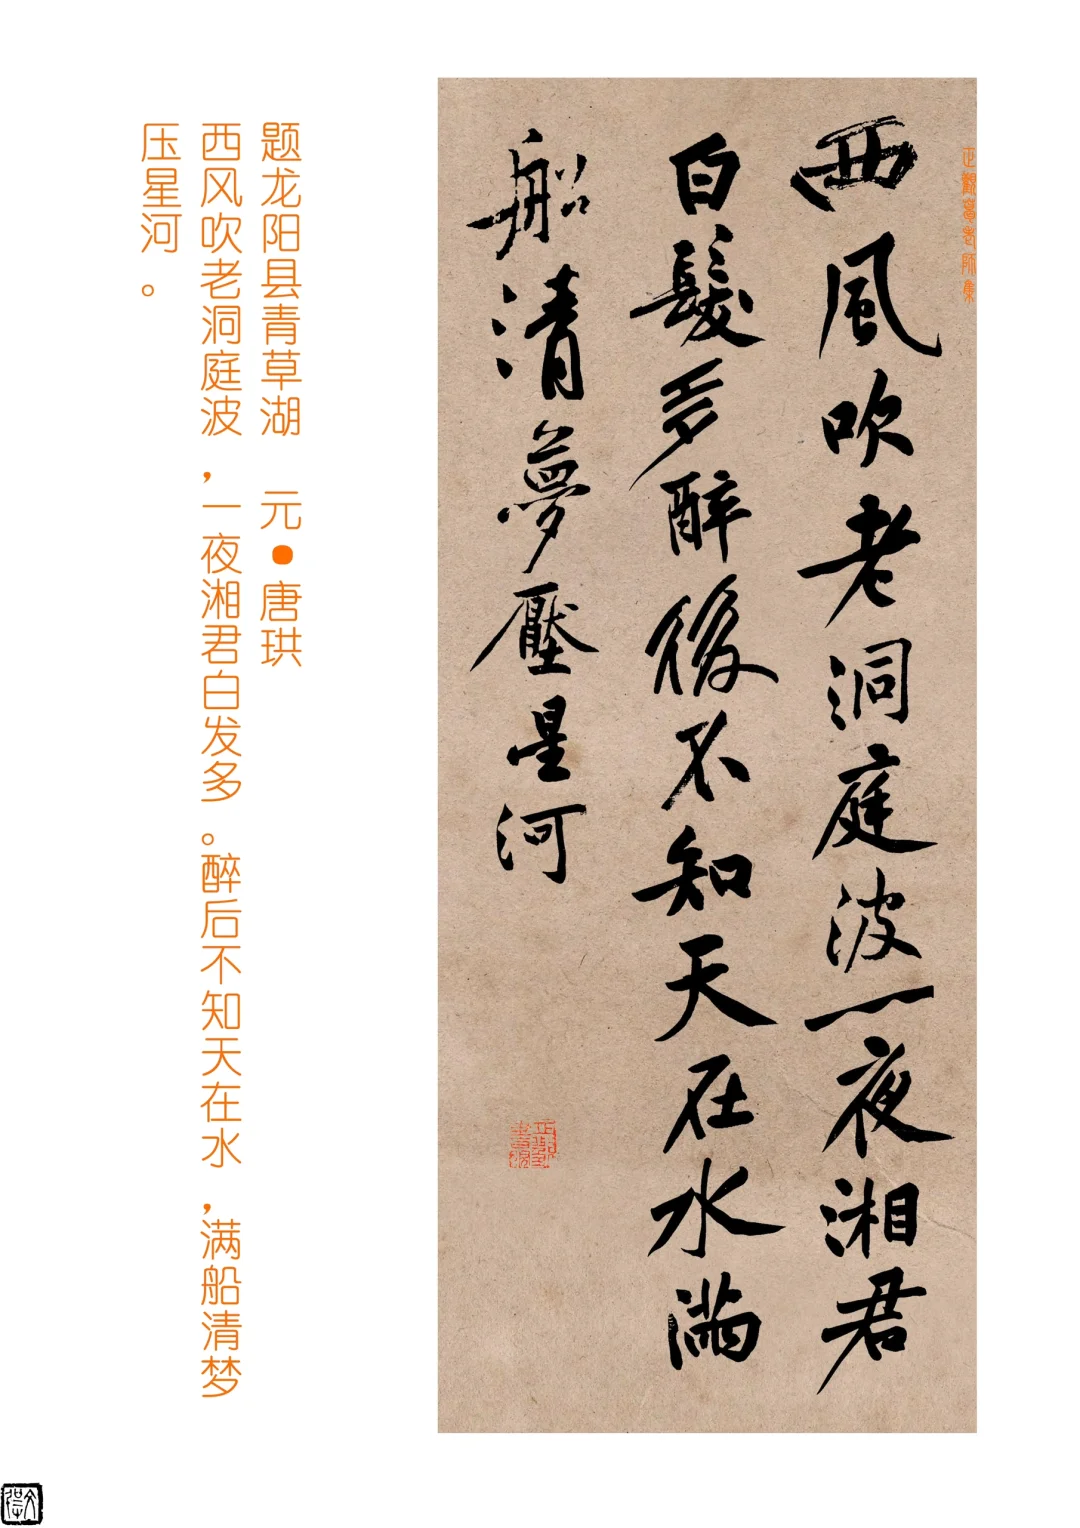 西風吹老洞庭波一夜湘君
白髮多醉後不知天在水滿
船清夢壓星河
题龙阳县青草湖 元•唐珙
西风吹老洞庭波，一夜湘君白发多。醉后不知天在水，满船清梦
压星河。